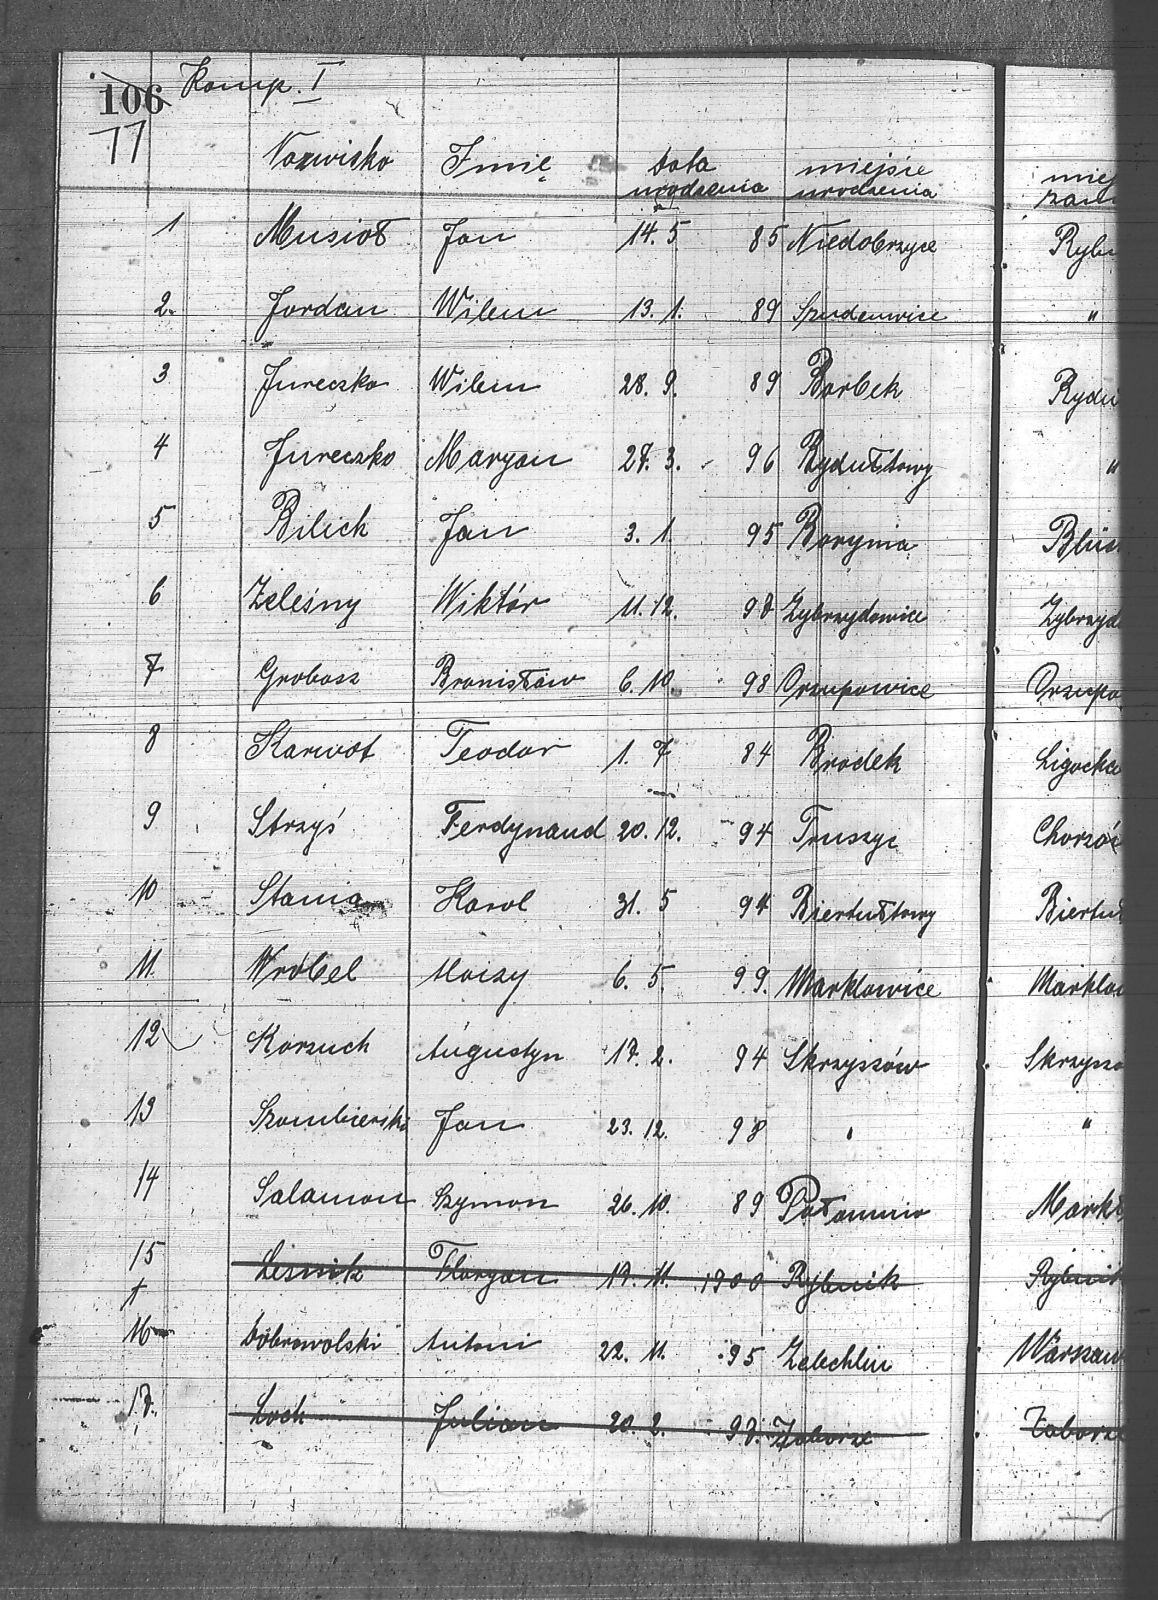 106 Komp. I
77
Nazwisko Imię data urodzenia miejsce urodzenia
1 Musioł Jan 14. 5 85 Niedobrzyce Rybn
2. Jordan Wilem 13. 1. 89 "
3 Jureczko Wilem 28. 9. 89 Borbek Rydu
4 Jureczko Maryan 27. 3. 96 Rydułtowy "
5 Bilich Jan 3. 1. 95 Borynia
6 Zeleśny Wiktór 11. 12. 97 Zybrzydowice Zybrzyd
7 Grobosz Bronisław 6. 10. 98 Orzupowice Orzupo
8 Karwot Teodor 1. 7 84 Brodek Ligocka
9 Strzyś Ferdynand 20. 12. 94 Chorzó
10 Stania Karol 31. 5 94 Biertułtowy Biertuł
11. Wróbel Aloizy 6. 5. 99. Marklowice Marklow
12 Korzuch Augustyn 17. 2. 94 Skrzyszów Skrzysz
13 Szombierski Jan 23. 12. 98 " "
14 Salamon Szymon 26. 10. 89 Mark
15 Lesnik Floryan 17. 11. 1900 Rybnik Rybnik
16 Dobrowolski Antoni 22. 11. 95 Zelechlin Warszaw
17. Loch Julian 20. 2. 97. Zaborze Zaborz